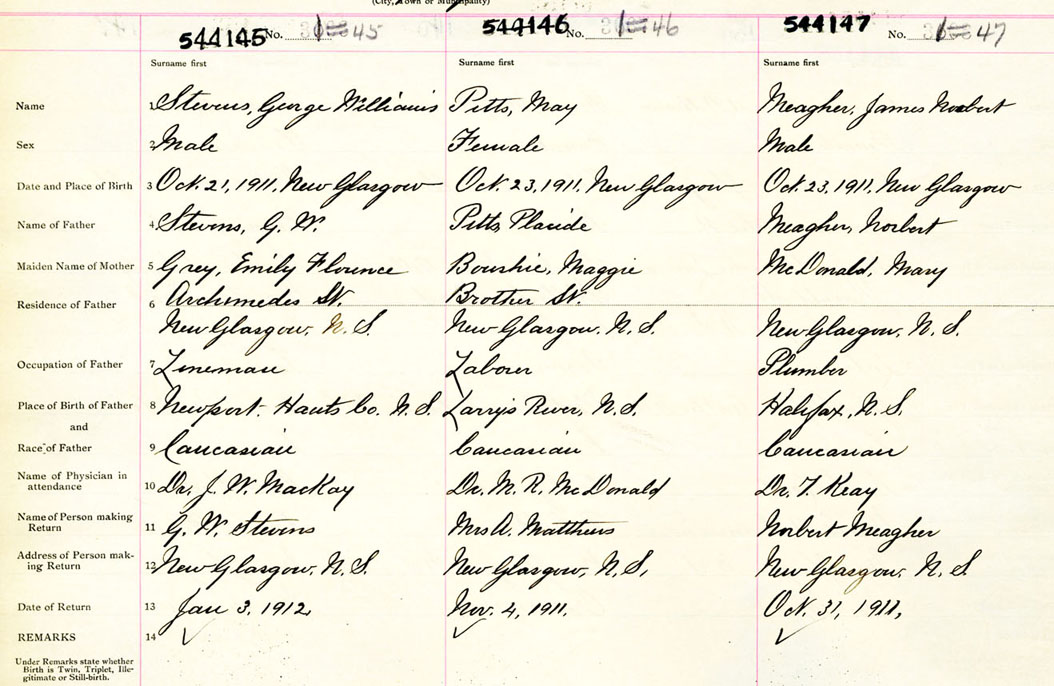 (City, Town or Municipality)
544145 No. 45 544146 No. 46 544147 No. 47
Surname first Surname first Surname first
Name 1 Stevens, George Williams Pitts, May Meagher, James Norbert
Sex 2 Male Female Male
Date and Place of Birth 3 Oct. 21, 1911, New Glasgow Oct. 23, 1911, New Glasgow Oct. 23, 1911, New Glasgow
Name of Father 4 Stevens, G. W. Pitts, Placide Meagher, Norbert
Maiden Name of Mother 5 Grey, Emily Florence Bourhie, Maggie McDonald, Mary
Residence of Father 6 Archimedes St. Brother St.
New Glasgow, N. S. New Glasgow, N. S. New Glasgow, N. S.
Occupation of Father 7 Lineman Laborer Plumber
Place of Birth of Father 8 Newport, Hants Co. N. S. Larry's River, N. S. Halifax, N. S.
and
Race of Father 9 Caucasian Caucasian Caucasian
Name of Physician in
attendance 10 Dr. J. W. MacKay Dr. M. R. McDonald Dr. F. Keay
Name of Person making
Return 11 G. W. Stevens Mrs A. Matthews Norbert Meagher
Address of Person mak-
ing Return 12 New Glasgow, N. S. New Glasgow, N. S. New Glasgow, N. S.
Date of Return 13 Jan 3, 1912 Nov. 4, 1911. Oct. 31, 1911,
REMARKS 14
Under Remarks state whether
Birth is Twin, Triplet, Ille-
gitimate or Still-birth.